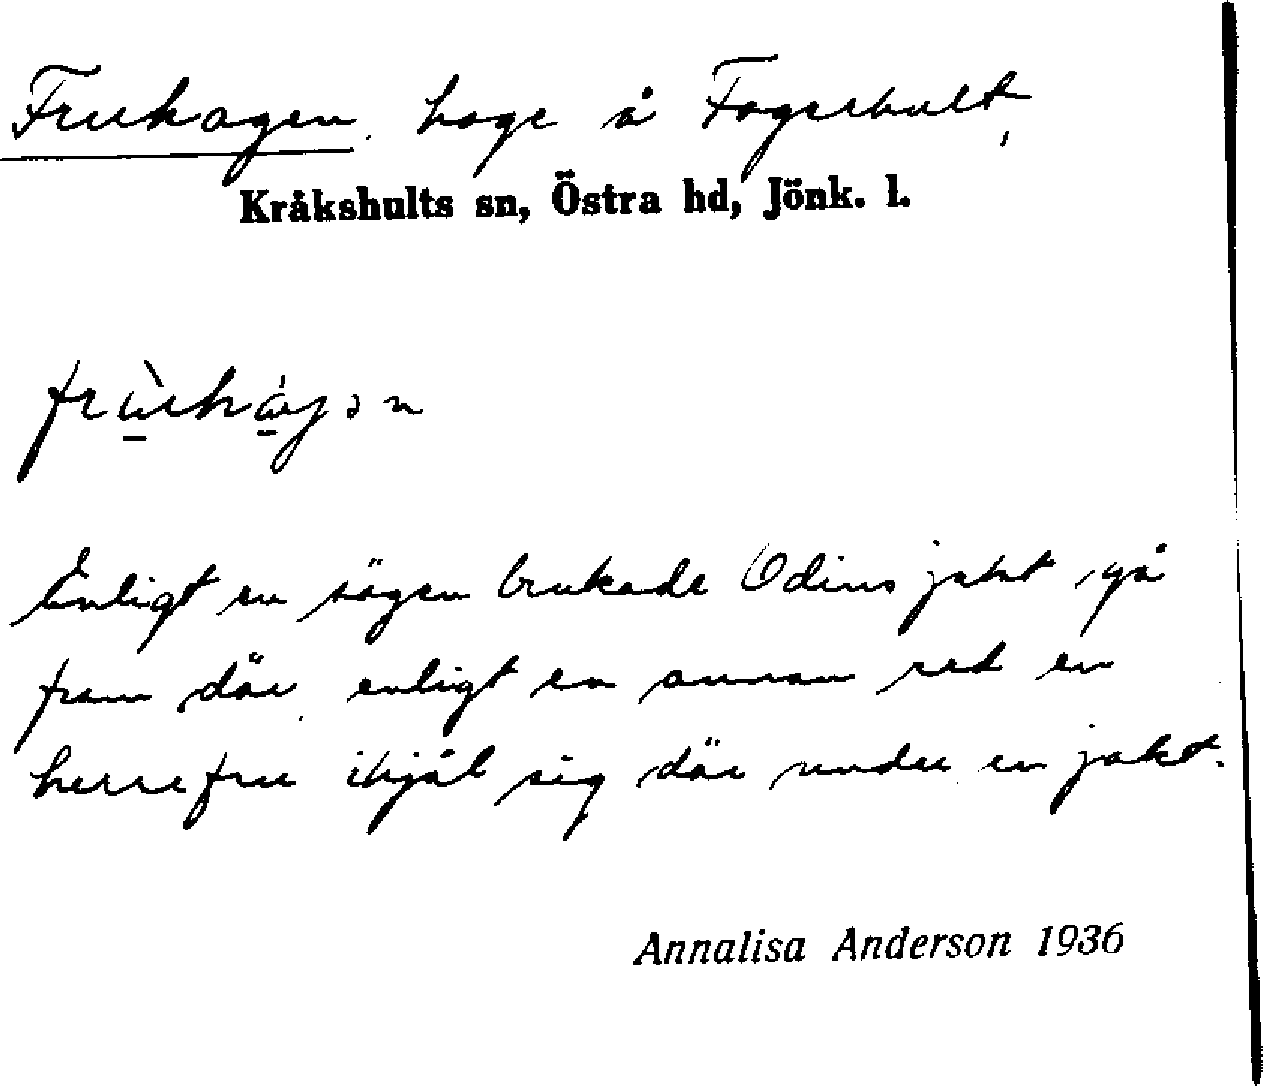 Fruhagen, hage å Fagerhult,
Kråkshults sn, Östra hd, Jönk. l.
Enligt en sägen brukade Odins jakt gå
fram där, enligt en annan red en
herrefru ihjäl sig där under en jakt.
Annalisa Anderson 1936